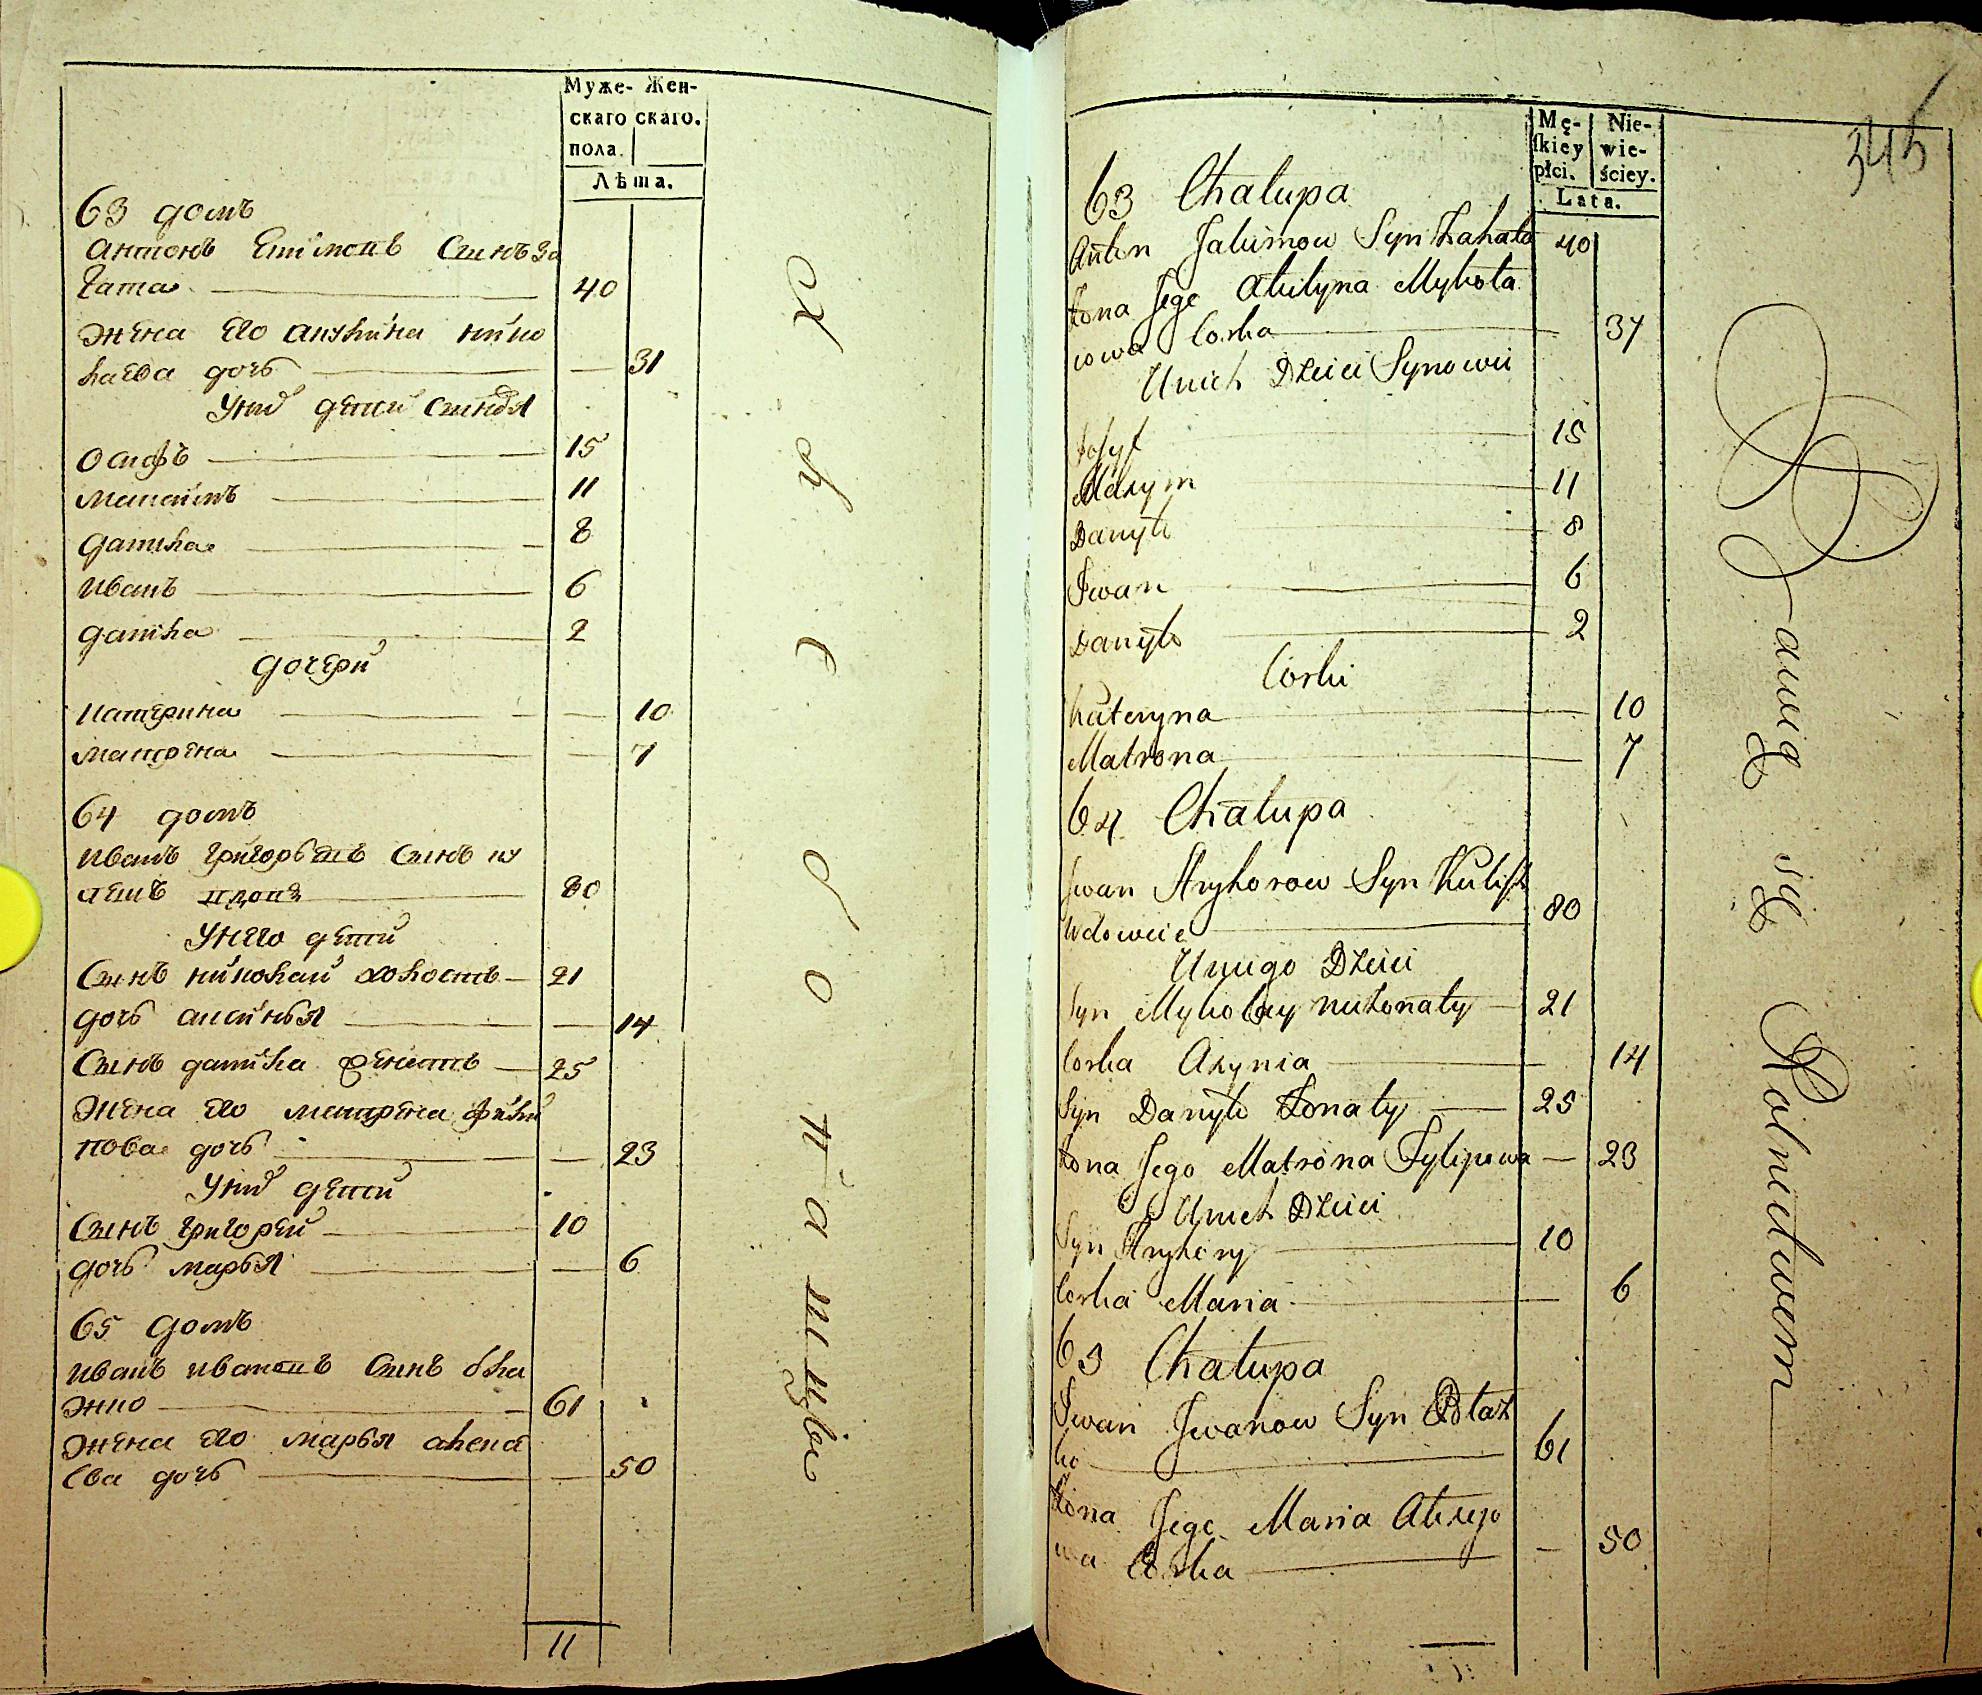 Муже- Жен-
скаго скаго.
пола.
Лѣта.
63 домъ
Антонъ Ефимовъ Сынъ За
хата 40
Жена Его Акулина Нико
лаева дочь 31
У них дети Сыновья
Осифъ 15
Максимъ 11
Данила 8
Иванъ 6
Данила 2
дочери
Катерина 10
Матрена 7
64 домъ
Иванъ Григорьевъ Сынъ Ку
лешъ вдовъ 80
У него дети
Сынъ Николай холостъ 21
дочь Аксинья 14
Сынъ Данила женатъ 25
Жена Его Матрена Фили
пова дочь 23
У них дети
Сынъ Григорей 10
дочь Марья 6
65 домъ
Иванъ Ивановъ Сынъ
61
Жена Его Марья Алексе
ева дочь 50
11
345
Mę- Nie-
skiey wie-
płci. ściey.
Lata.
63 Chałupa
Anton Jakimow Syn Zahato 40
Żona Jego Akulyna Mykoła
iowa Corka 37
U nich Dzieci Synowie
Josyf 15
Maxym 11
Danyło 8
Iwan 6
Danyło 2
Corki
Kateryna 10
Matrona 7
64 Chałupa
Iwan Hryhorow Syn Kulish
Wdowiec 80
U niego Dzieci
Syn Mykołay nieżonaty 21
Corka Axynia 14
Syn Danyło Żonaty 25
Żona Jego Matrona Fylipowa 23
U nich Dzieci
Syn Hryhory 10
Corka Maria 6
65 Chałupa
Iwan Iwanow Syn Błaż
ko 61
Żona Jego Maria Alexyjo
wa Corka 50
Bawią się Rolnictwem